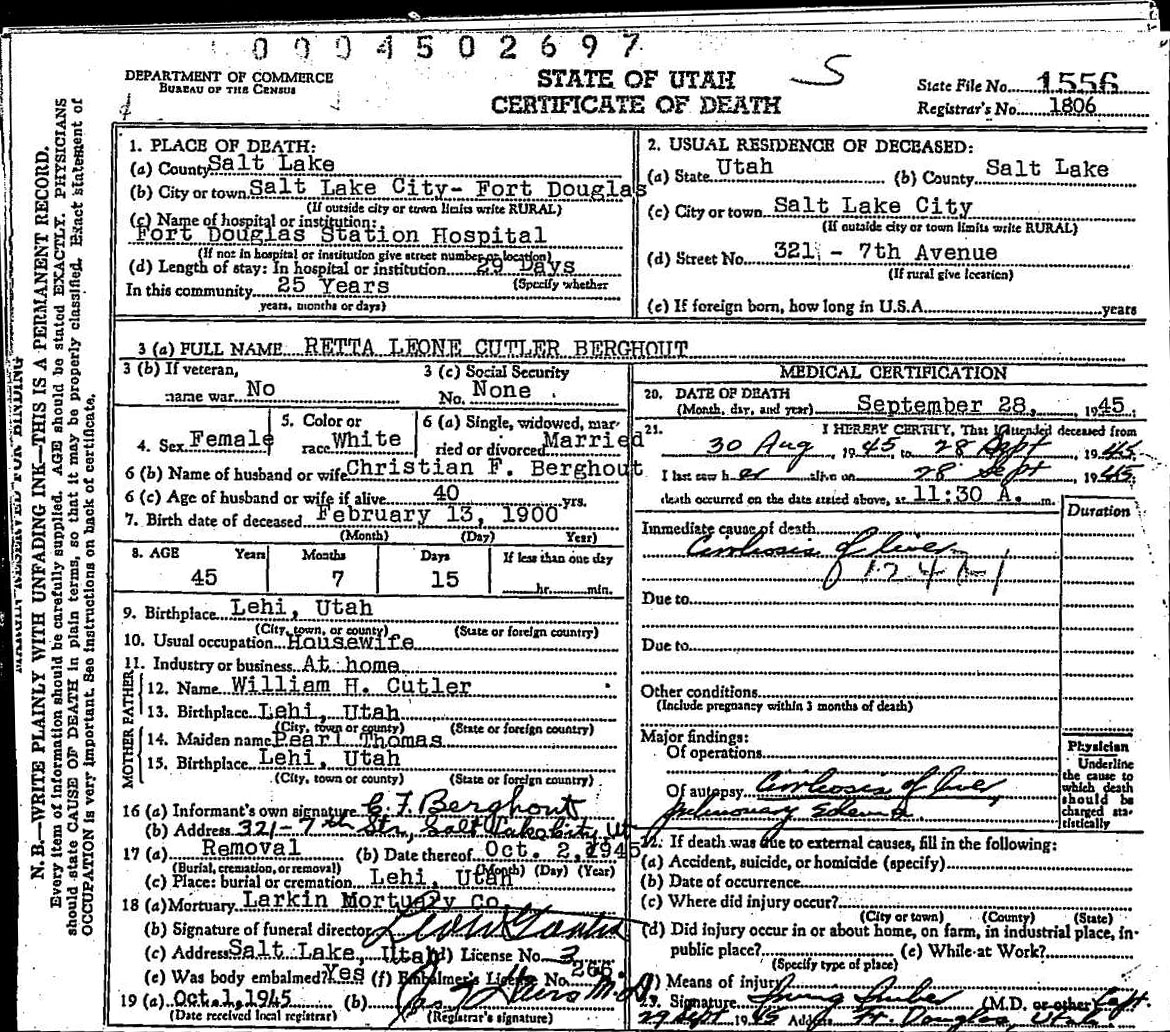 0004502697
DEPARTMENT OF COMMERCE
BUREAU OF THE CENSUS
STATE OF UTAH
CERTIFICATE OF DEATH
S
State File No. 1556
Registrar's No. 1806
N. B.—WRITE PLAINLY WITH UNFADING INK—THIS IS A PERMANENT RECORD.
Every item of information should be carefully supplied. AGE should be stated EXACTLY. PHYSICIANS
should state CAUSE OF DEATH in plain terms, so that it may be properly classified. Exact statement of
OCCUPATION is very important. See instructions on back of certificate.
MARGIN RESERVED FOR BINDING
1. PLACE OF DEATH:
(a) County Salt Lake
(b) City or town Salt Lake City- Fort Douglas
(If outside city or town limits write RURAL)
(c) Name of hospital or institution:
Fort Douglas Station Hospital
(If not in hospital or institution give street number or location)
(d) Length of stay: In hospital or institution 29 Days
(Specify whether
In this community 25 Years
years, months or days)
2. USUAL RESIDENCE OF DECEASED:
(a) State Utah (b) County Salt Lake
(c) City or town Salt Lake City
(If outside city or town limits write RURAL)
(d) Street No. 321 - 7th Avenue
(If rural give location)
(e) If foreign born, how long in U.S.A. years
3 (a) FULL NAME RETTA LEONE CUTLER BERGHOUT
3 (b) If veteran,
name war No
3 (c) Social Security
No. None
4. Sex Female
5. Color or
race White
6 (a) Single, widowed, mar-
ried or divorced Married
6 (b) Name of husband or wife Christian F. Berghout
6 (c) Age of husband or wife if alive 40 yrs.
7. Birth date of deceased February 13, 1900
(Month) (Day) Year)
8. AGE Years Months Days If less than one day
45 7 15 hr. min.
9. Birthplace Lehi, Utah
(City, town, or county) (State or foreign country)
10. Usual occupation Housewife
11. Industry or business At home
FATHER
12. Name William H. Cutler
13. Birthplace Lehi, Utah
(City, town or county) (State or foreign country)
MOTHER
14. Maiden name Pearl Thomas
15. Birthplace Lehi, Utah
(City, town or county) (State or foreign country)
16 (a) Informant's own signature C. F. Berghout
(b) Address 321-7th Str, Salt Lake City, Ut
17 (a) Removal (b) Date thereof Oct. 2, 1945
(Burial, cremation, or removal) (Month) (Day) (Year)
(c) Place: burial or cremation Lehi, Utah
18 (a) Mortuary Larkin Mortuary Co
(b) Signature of funeral director
(c) Address Salt Lake, Utah (d) License No. 3
(e) Was body embalmed? Yes (f) Embalmer's License No. 266.
19 (a) Oct. 1, 1945 (b) M.D.
(Date received local registrar) (Registrar's signature)
MEDICAL CERTIFICATION
20. DATE OF DEATH
(Month, day, and year) September 28, 1945;
21. I HEREBY CERTIFY, That I attended deceased from
30 Aug, 1945 to 28 Sept, 1945
I last saw her alive on 28 Sept, 1945;
death occurred on the date stated above, at 11:30 A. m.
Duration
Immediate cause of death
Cirrhosis of liver
124 b 1
Due to
Due to
Other conditions
(Include pregnancy within 3 months of death)
Major findings:
Of operations
Of autopsy Cirrhosis of liver,
pulmonary edema.
Physician
Underline
the cause to
which death
should be
charged sta-
tistically
22. If death was due to external causes, fill in the following:
(a) Accident, suicide, or homicide (specify)
(b) Date of occurrence
(c) Where did injury occur?
(City or town) (County) (State)
(d) Did injury occur in or about home, on farm, in industrial place, in-
public place? (e) While at Work?
(Specify type of place)
(f) Means of injury
23. Signature Irving Huber (M.D. or other) Capt.
29 Sept 1945 Address Ft. Douglas, Utah